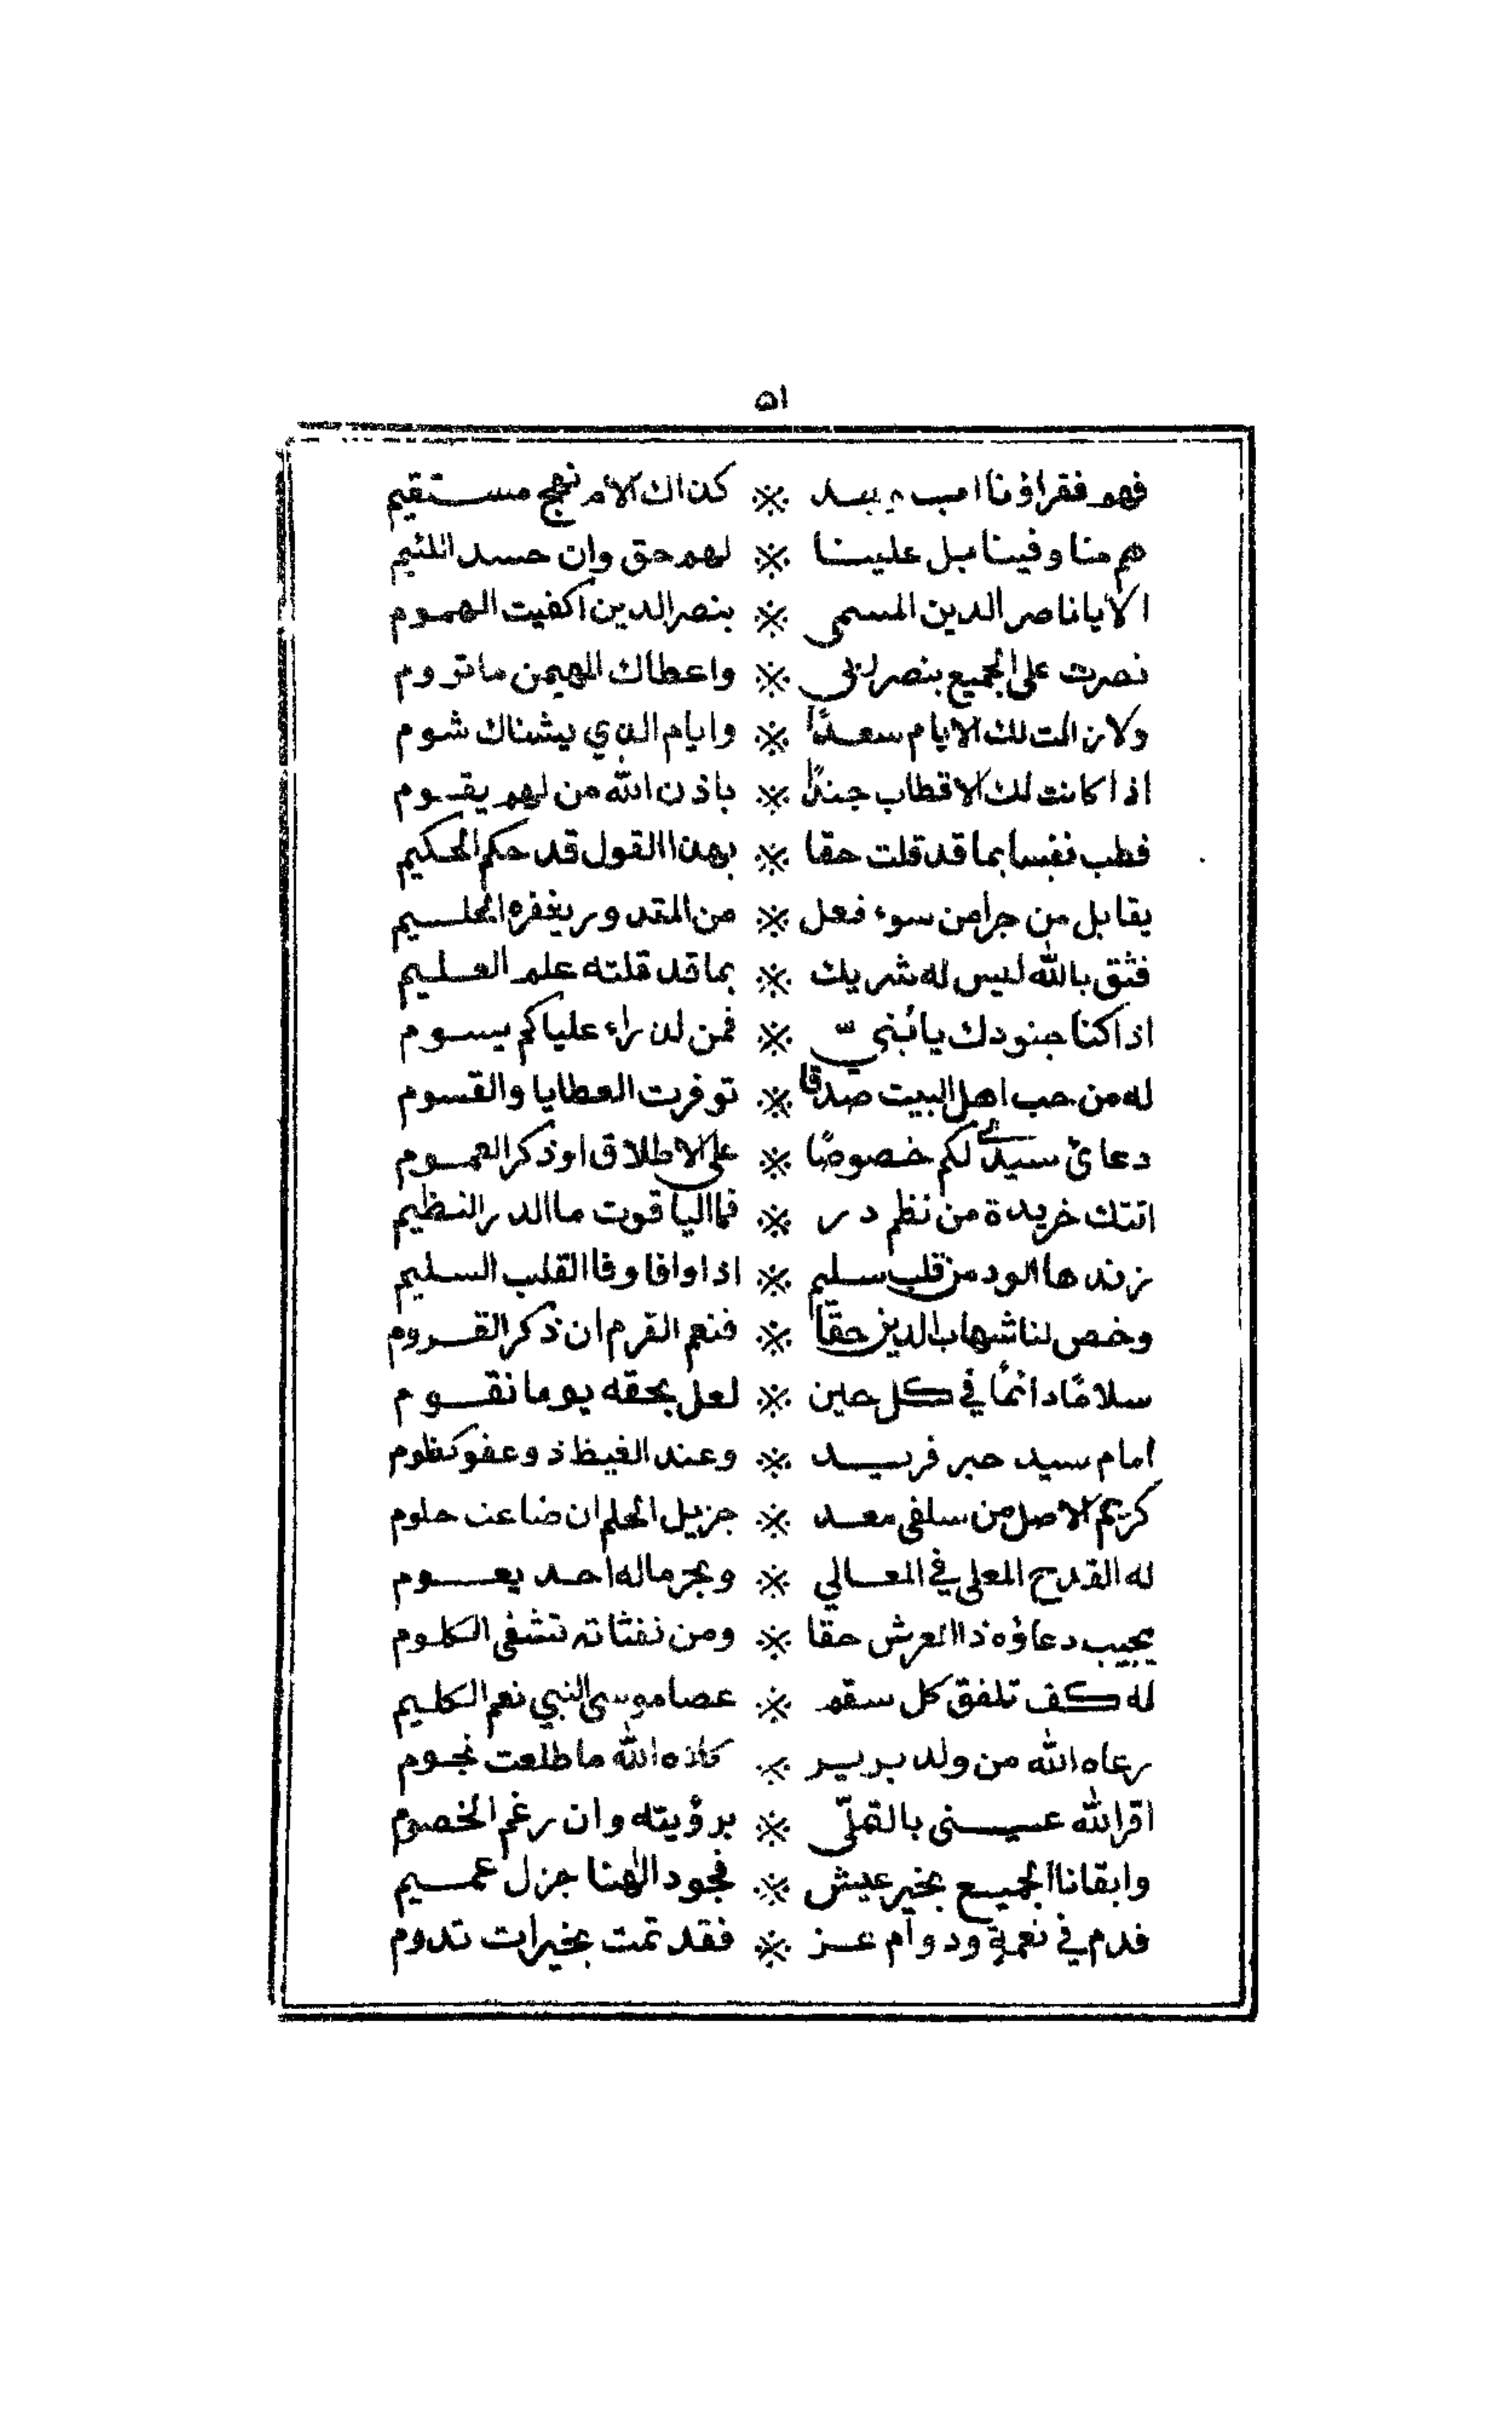 ٥١
فهم فقراؤنا ※ كذاك الامر نهج مستقيم
هم منا وفينا بل علينا ※ لهم حق وان حسد اللئيم
الا يا ناصر الدين المسمى ※ بنصر الدين اكفيت الهموم
نصرت على الجميع بنصر ربي ※ واعطاك المهيمن ما تروم
ولا زالت لك الايام سعدًا ※ وايام الذي يشناك شوم
اذا كانت لك الاقطاب جندًا ※ باذن الله من لهم يقوم
فطب نفسا بما قد قلت حقا ※ بهذا القول قد حكم الحكيم
يقابل من جرا من سوء فعل ※ من المقدور يغفره الحليم
فثق بالله ليس له شريك ※ بما قد قلته علم العليم
اذا كنا جنودك يا بُنيّ ※ فمن لذراء علياكم يسوم
له من حب اهل البيت صدقا ※ توفرت العطايا والقسوم
دعائ سيدي لكم خصوصًا ※ على الاطلاق او ذكر العموم
اتتك خريدة من نظم در ※ فما الياقوت ما الدر النظيم
زندها الود من قلب سليم ※ اذا وافا وفا القلب السليم
وخص لنا شهاب الدين حقًا ※ فنعم القرم ان ذكر القروم
سلامًا دائمًا في كل حين ※ لعل بحقه يوما نقوم
امام سيد حبر فريد ※ وعند الغيظ ذو عفو كظوم
كريم الاصل من سلفى معد ※ جزيل الحلم ان ضاعت حلوم
له القدح المعلى في المعالي ※ وبحر ماله احد يعوم
يجيب دعاؤه ذا العرش حقا ※ ومن نفثاته تشفى الكلوم
له كف تلفق كل سقم ※ عصا موسى النبي نعم الكليم
رعاه الله من ولد برير ※ كلاذه الله ما طلعت نجوم
اقر الله عيني بالتملّي ※ برؤيته وان رغم الخصوم
وابقانا الجميع بخير عيش ※ فجود الٰهنا جزل عميم
فدم في نعمةٍ ودوام عز ※ فقد تمت بخيرات تدوم